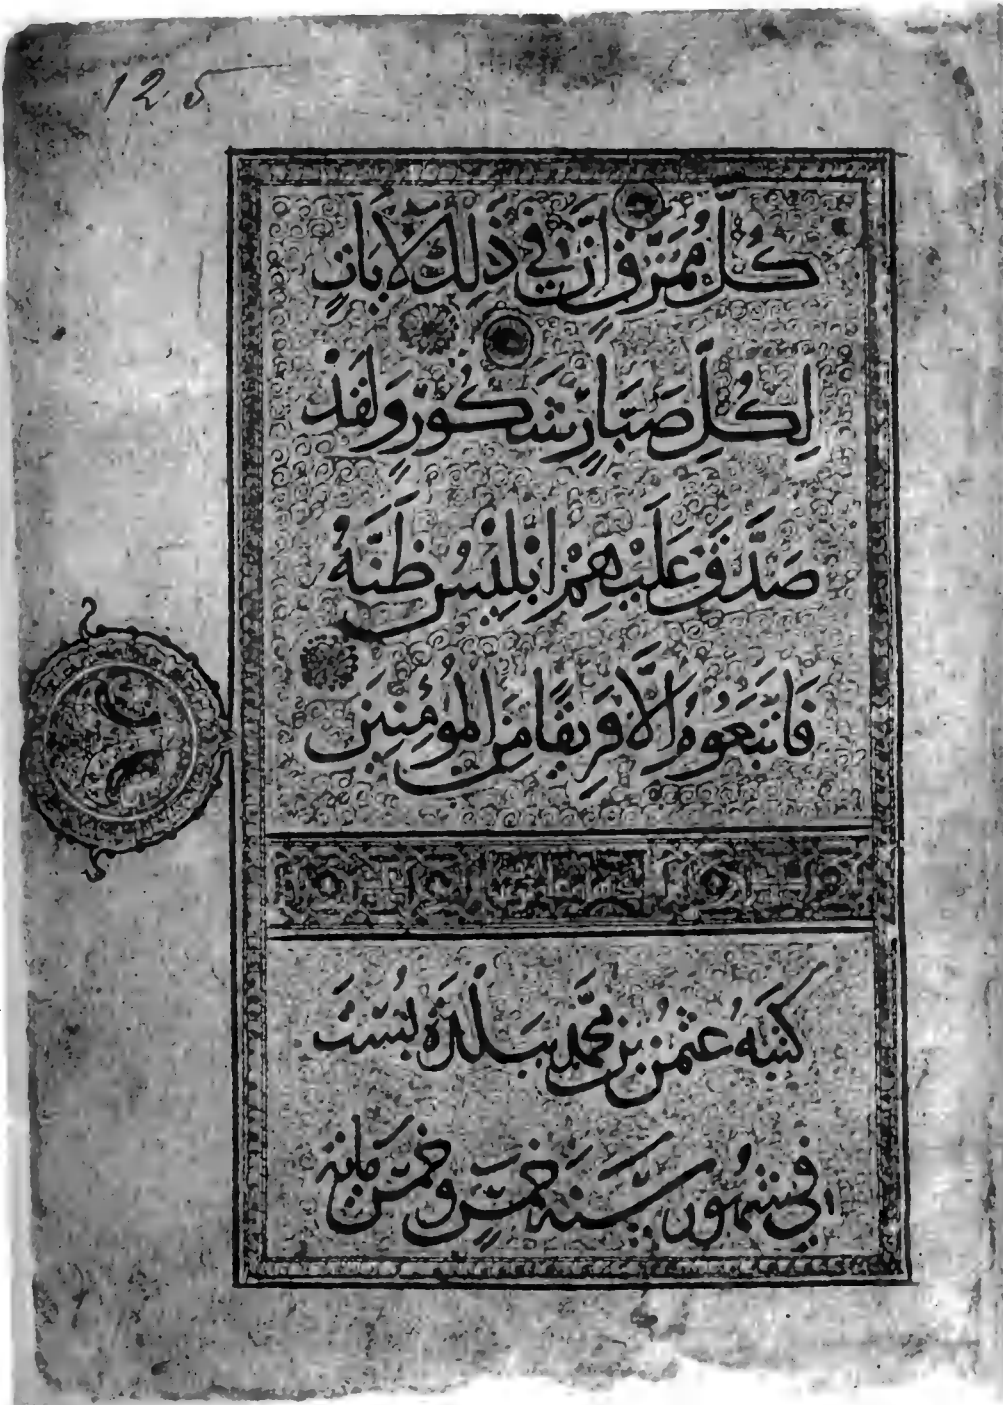 125
كُلَّ مُمَزَّقٍ إِنَّ فِي ذَلِكَ لَآيَاتٍ
لِكُلِّ صَبَّارٍ شَكُورٍ وَلَقَدْ
صَدَّقَ عَلَيْهِمْ إِبْلِيسُ ظَنَّهُ
فَاتَّبَعُوهُ إِلَّا فَرِيقًا مِنَ الْمُؤْمِنِينَ
كَتَبَهُ عُثْمَنُ بْنُ مُحَمَّدٍ بِبَلْدَةِ بُسْتَ
فِي شُهُورِ سَنَةِ خَمْسٍ وَخَمْسَ مِائَةٍ